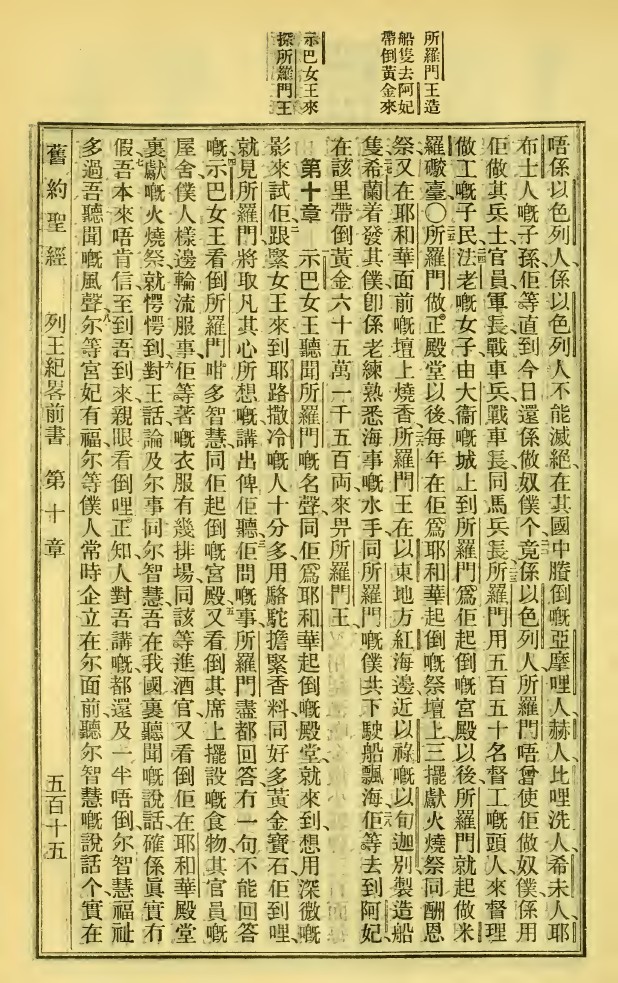 所羅門王造
船隻去阿妃
帶倒黃金來
示巴女王來
探所羅門王
唔係以色列人係以色列人不能滅絕在其國中賸倒嘅亞摩哩人赫人比哩洗人希未人耶
布士人嘅子孫佢等直到今日還係做奴僕个竟係以色列人所羅門唔曾使佢做奴僕係用
佢做其兵士官員軍長戰車兵戰車長同馬兵長所羅門用五百五十名督工嘅頭人來督理
做工嘅子民法老嘅女子由大衞嘅城上到所羅門爲佢起倒嘅宮殿以後所羅門就起做米
羅礅臺〇所羅門做正殿堂以後每年在佢爲耶和華起倒嘅祭壇上三擺獻火燒祭同酬恩
祭又在耶和華面前嘅壇上燒香所羅門王在以東地方紅海邊近以祿嘅以旬迦別製造船
隻希蘭着發其僕卽係老練熟悉海事嘅水手同所羅門嘅僕共下駛船飄海佢等去到阿妃
在該里帶倒黃金六十五萬一千五百両來畀所羅門王
第十章 示巴女王聽聞所羅門嘅名聲同佢爲耶和華起倒嘅殿堂就來到想用深微嘅
影來試佢跟緊女王來到耶路撒冷嘅人十分多用駱駝擔緊香料同好多黃金寶石佢到哩
就見所羅門將取凡其心所想嘅講出俾佢聽佢問嘅事所羅門盡都回答冇一句不能回答
嘅示巴女王看倒所羅門咁多智慧同佢起倒嘅宮殿又看倒其席上擺設嘅食物其官員嘅
屋舍僕人樣邊輪流服事佢等著嘅衣服有幾排場同該等進酒官又看倒佢在耶和華殿堂
裏獻嘅火燒祭就愕愕到對王話論及尔事同尔智慧吾在我國裏聽聞嘅說話確係眞實冇
假吾本來唔肯信至到吾到來親眼看倒哩正知人對吾講嘅都還及一半唔倒尔智慧福祉
多過吾聽聞嘅風聲尔等宮妃有福尔等僕人常時企立在尔面前聽尔智慧嘅說話个實在
舊約聖經 列王紀畧前書 第十章 五百十五